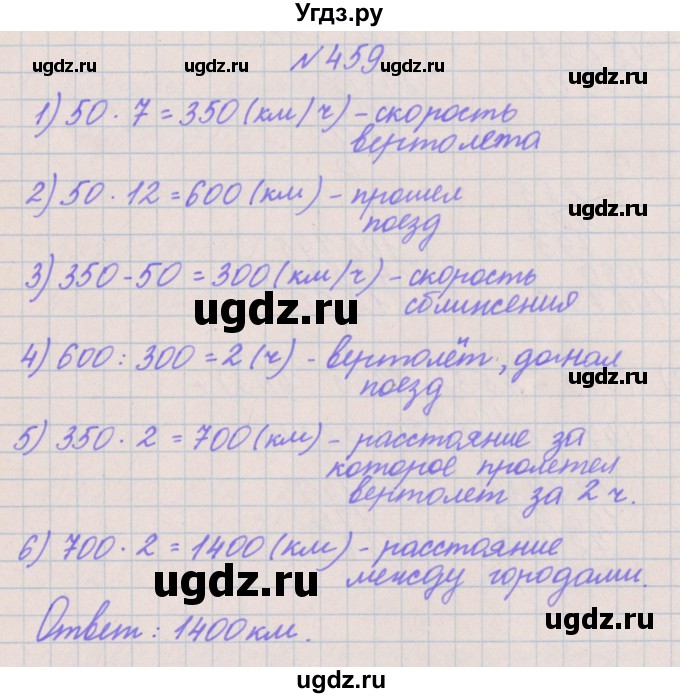 Угдз.ру
ugdz.ru ugdz.ru №459 ugdz.ru
1) 50 · 7 = 350 (км/ч) - скорость
вертолета
2) 50 · 12 = 600 (км) - прошел
поезд
ugdz.ru
3) 350 - 50 = 300 (км/ч) - скорость
сближения
ugdz.ru
4) 600 : 300 = 2 (ч) - вертолёт, догнал
поезд
ugdz.ru
5) 350 · 2 = 700 (км) - расстояние за
которое пролетел
вертолет за 2 ч.
6) 700 · 2 = 1400 (км) - расстояние
между городами.
ugdz.ru
ugdz.ru
Ответ: 1400 км.
ugdz.ru ugdz.ru ugdz.ru